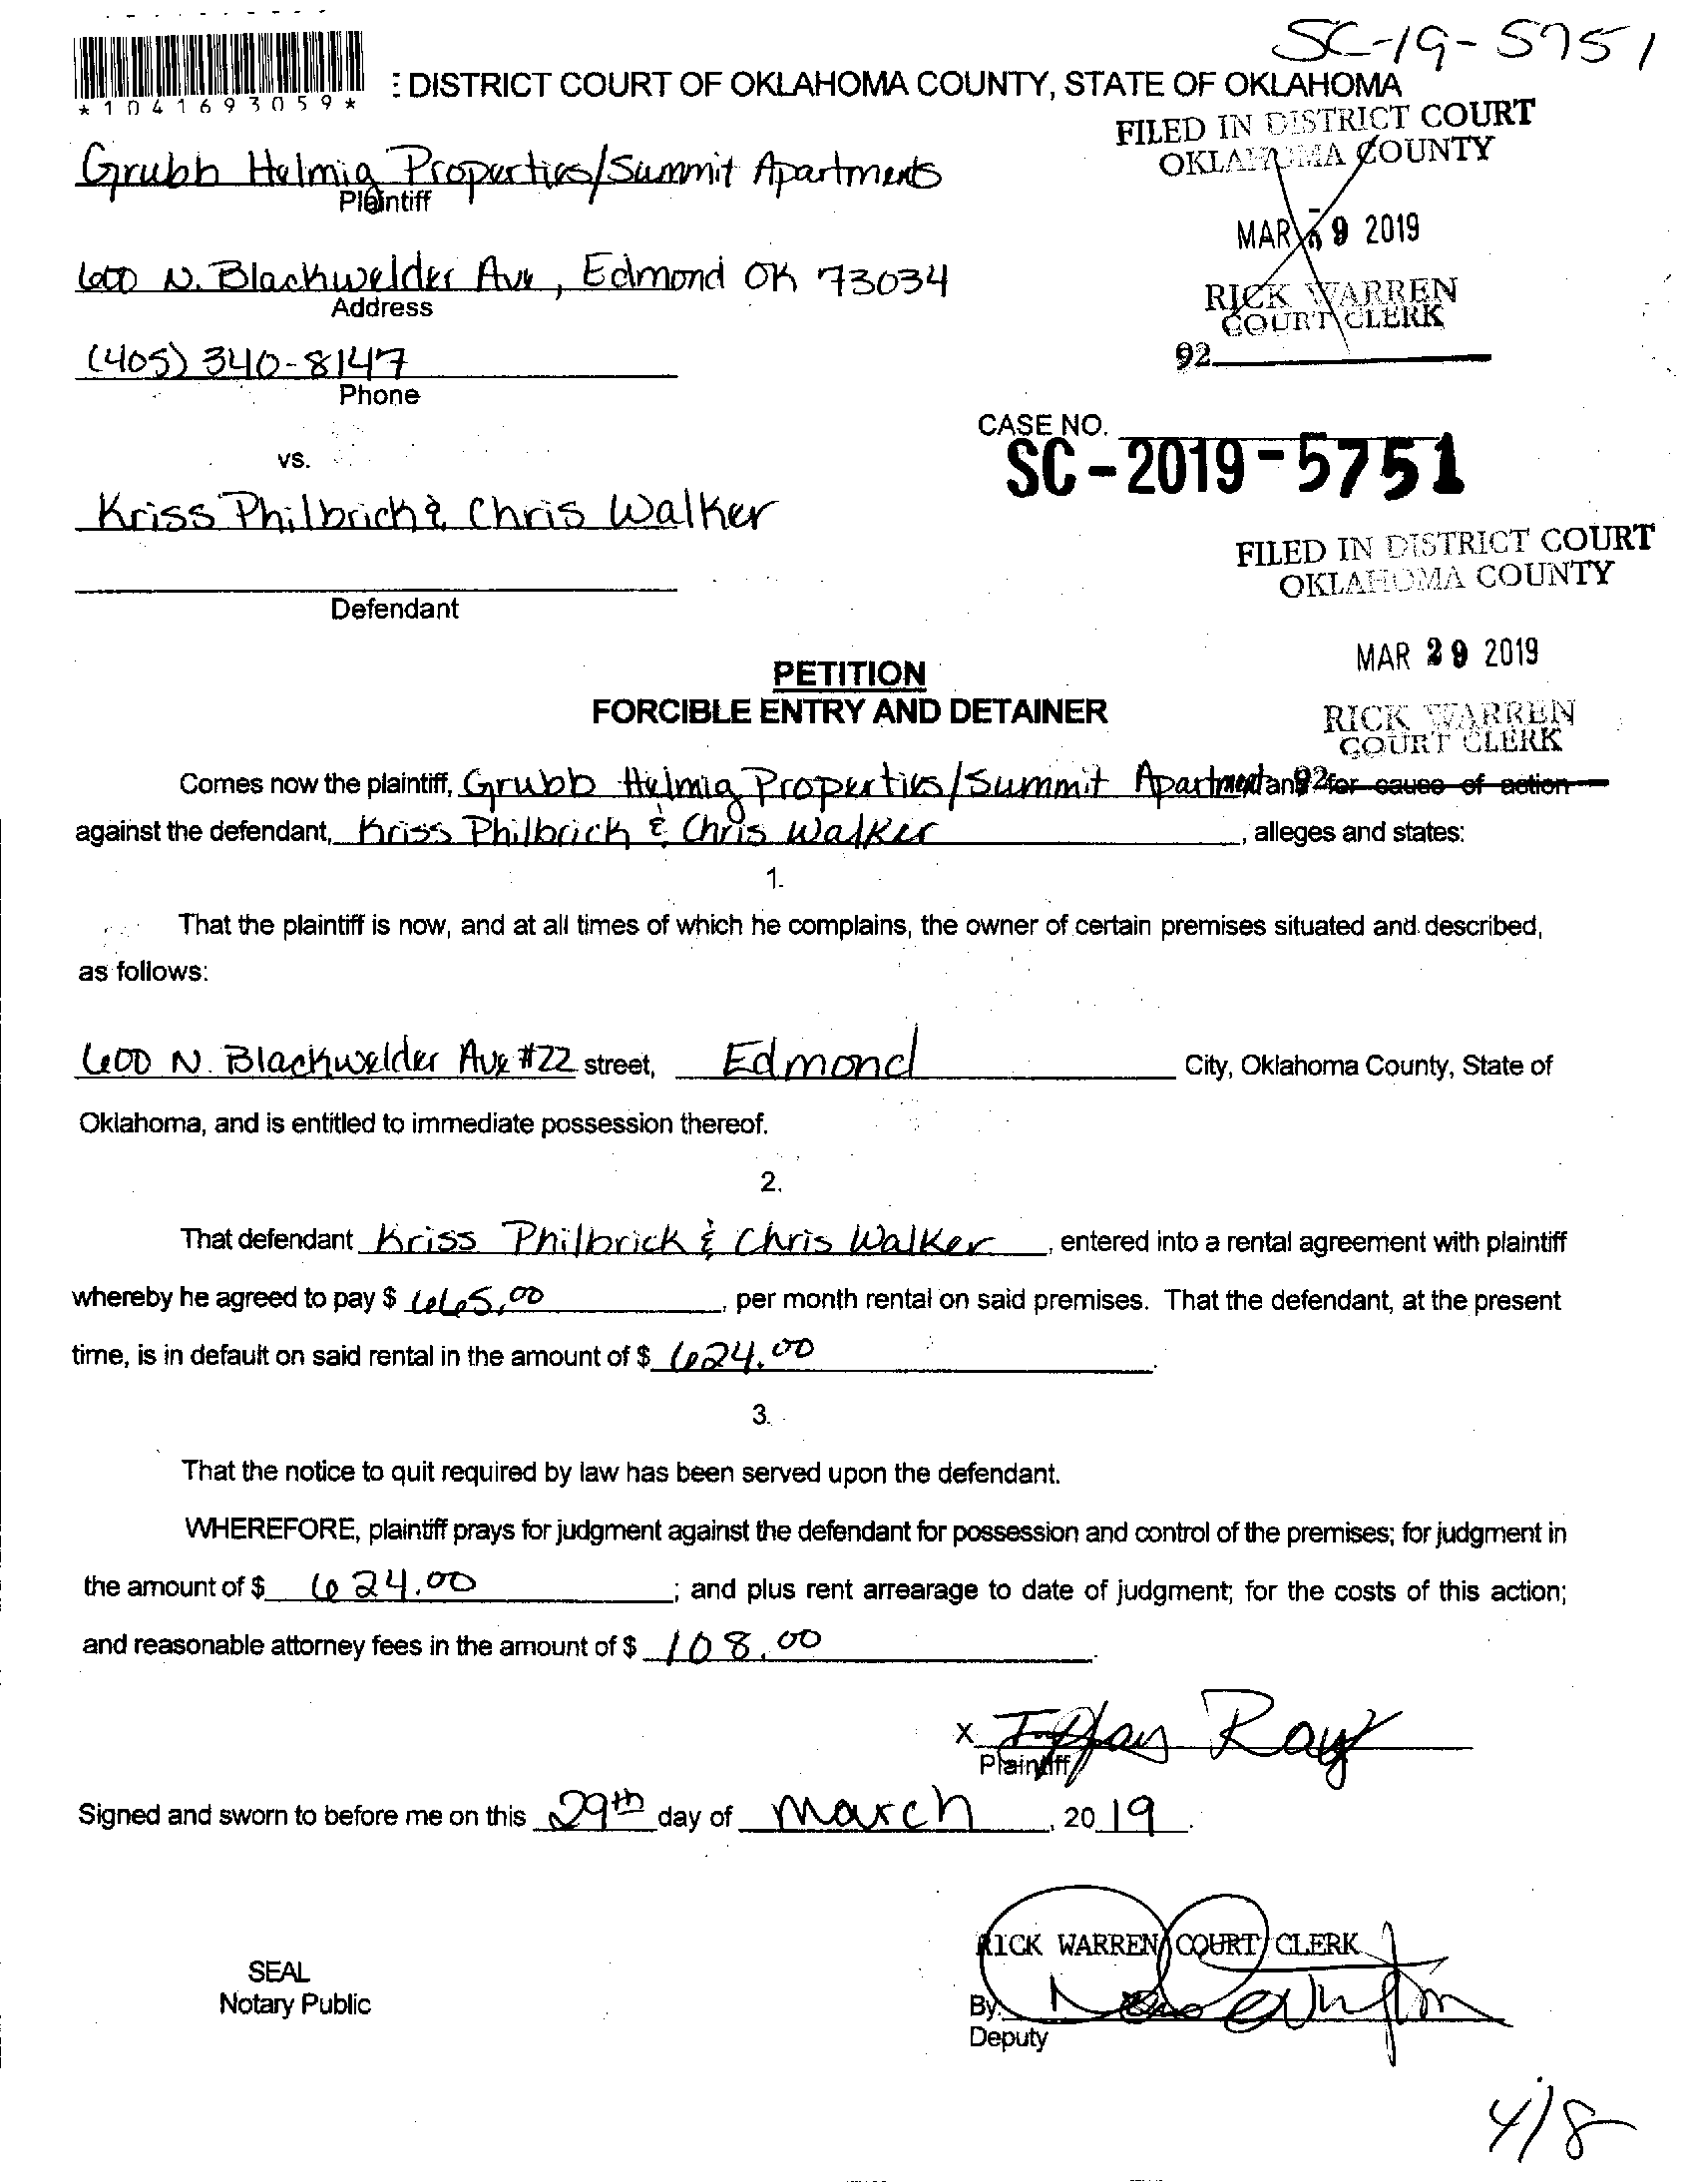 SC-19-5751
*1041693059*
: DISTRICT COURT OF OKLAHOMA COUNTY, STATE OF OKLAHOMA
FILED IN DISTRICT COURT
OKLAHOMA COUNTY
Grubb Helmig Properties/Summit Apartments
Plaintiff
MAR 9 2019
600 N. Blackwelder Ave, Edmond OK 73034
Address
RICK WARREN
COURT CLERK
92
(405) 340-8147
Phone
CASE NO.
SC-2019-5751
vs.
Kriss Philbrick & Chris Walker
FILED IN DISTRICT COURT
OKLAHOMA COUNTY
Defendant
MAR 29 2019
PETITION
FORCIBLE ENTRY AND DETAINER
RICK WARREN
COURT CLERK
Comes now the plaintiff, Grubb Helmig Properties/Summit Apartment and 92 for cause of action
against the defendant, Kriss Philbrick & Chris Walker, alleges and states:
1.
That the plaintiff is now, and at all times of which he complains, the owner of certain premises situated and described,
as follows:
600 N. Blackwelder Ave #22 street, Edmond City, Oklahoma County, State of
Oklahoma, and is entitled to immediate possession thereof.
2.
That defendant Kriss Philbrick & Chris Walker, entered into a rental agreement with plaintiff
whereby he agreed to pay $ 665.00, per month rental on said premises. That the defendant, at the present
time, is in default on said rental in the amount of $ 624.00.
3.
That the notice to quit required by law has been served upon the defendant.
WHEREFORE, plaintiff prays for judgment against the defendant for possession and control of the premises; for judgment in
the amount of $ 624.00; and plus rent arrearage to date of judgment; for the costs of this action;
and reasonable attorney fees in the amount of $ 108.00.
X Ray
Plaintiff
Signed and sworn to before me on this 29th day of March, 2019.
RICK WARREN COURT CLERK
SEAL
Notary Public
By:
Deputy
4/8